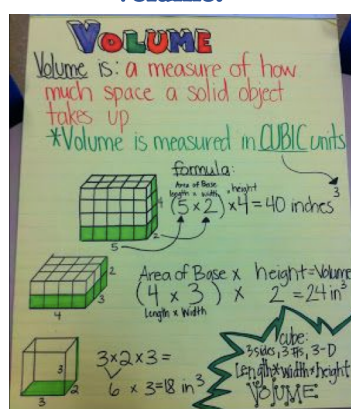 VOLUME
Volume is: a measure of how
much space a solid object
takes up
*Volume is measured in CUBIC units
formula:
Area of Base
length x width x height
(5 x 2) x 4 = 40 inches 3
4
2
5
Area of Base x height = Volume
(4 x 3) x 2 = 24 in 3
Length x Width
2
3
4
3 x 2 x 3 =
6 x 3 = 18 in 3
3
2
3
Cube:
3 sides, 3-D
Length x width x height
VOLUME